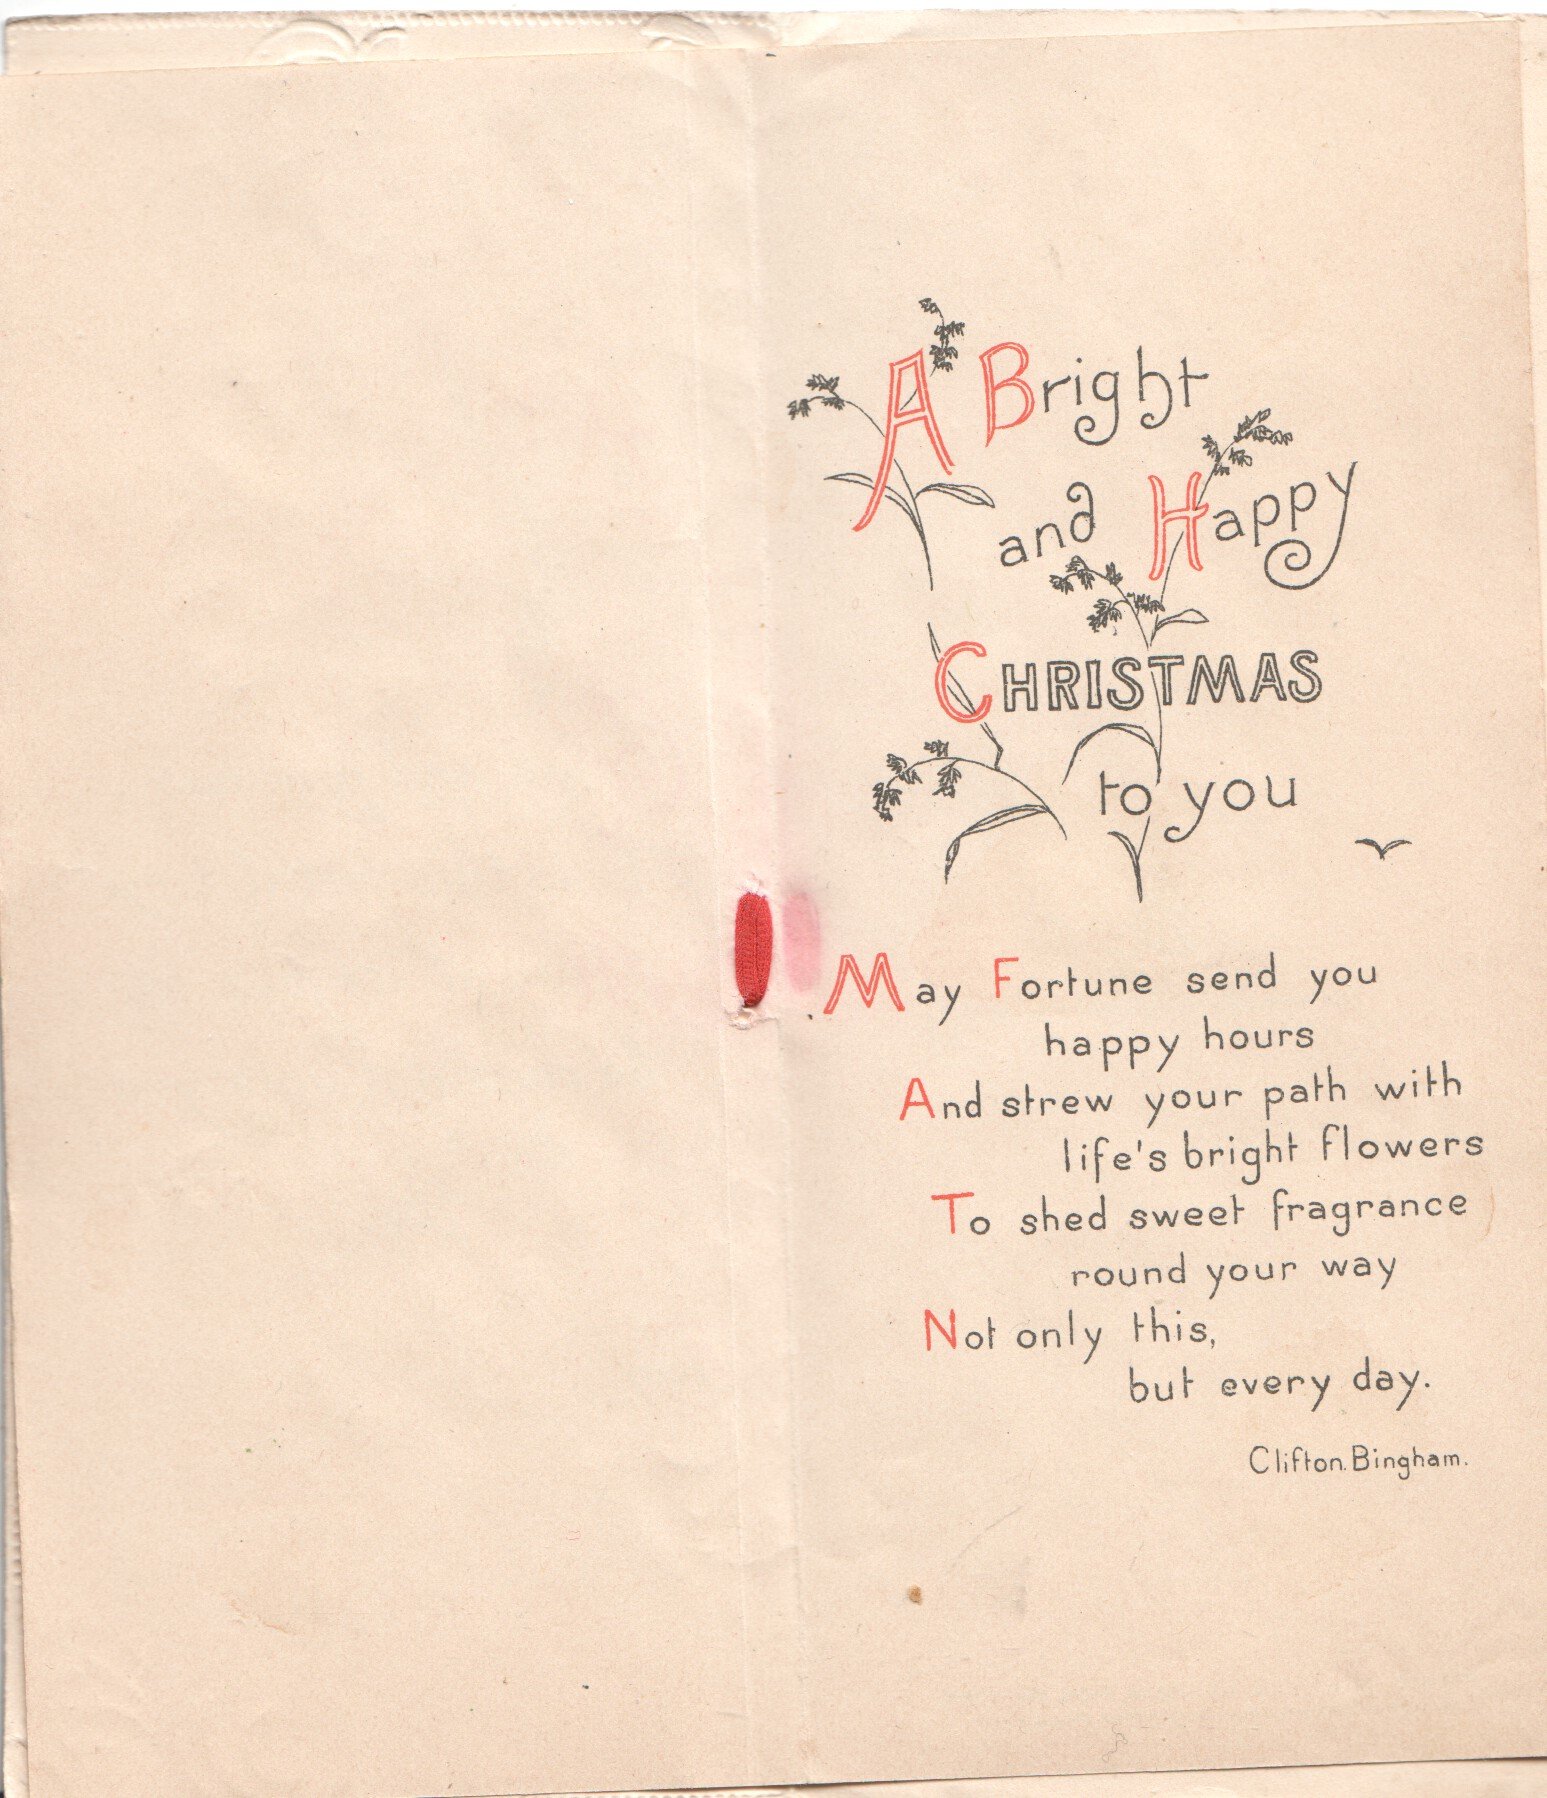 A Bright
and Happy
CHRISTMAS
to you
May Fortune send you
happy hours
And strew your path with
life's bright flowers
To shed sweet fragrance
round your way
Not only this,
but every day.
Clifton Bingham.